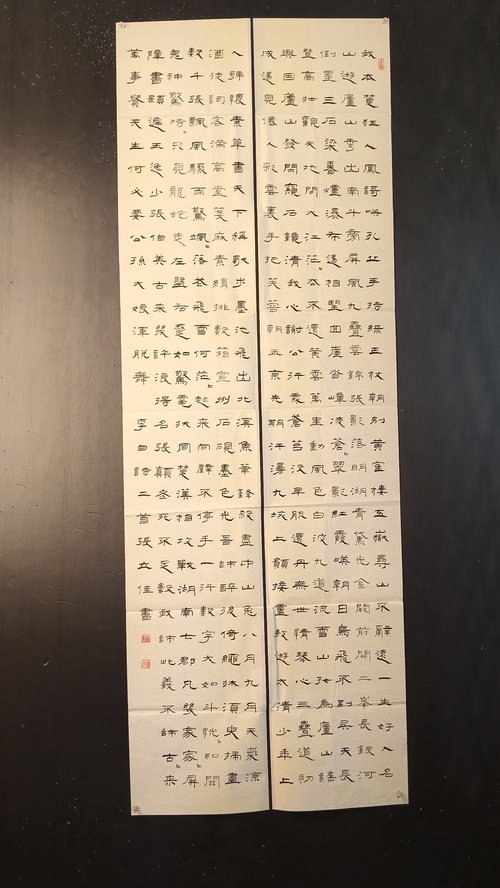 我本楚狂人鳳謌咲孔丘手持綠玉杖朝別黃隺樓五嶽尋山不辭遠一生好入名
山遊廬山秀出南斗旁屏風九疊雲錦張影落明湖青黛光金闕前開二峯長銀河
倒挂三石梁香爐瀑布遙相望回崖沓嶂凌蒼〻翠影紅霞暎朝日鳥飛不到吳天長
登高壯觀天地間大江茫〻去不還黃雲萬里動風色白波九道流雪山好為廬山謠
興因廬山發閑窺石鏡清我心謝公行處蒼苔沒早服還丹無世情琴心三疊道初
成遙見僊人彩雲裏手把芙蓉朝玉京先期汗漫九垓上願接盧敖遊太清少年上
人號懷素草書天下稱獨步墨池飛出北溟魚筆鋒殺盡中山兔八月九月天氣涼
酒徒詞客滿高堂箋麻素絹排數箱宣州石硯墨色光吾師醉後倚繩牀須臾掃盡
數千張飄風驟雨驚颯〻落花飛雪何茫〻起來向壁不停手一行數字大如斗怳〻如聞
鬼神驚時〻只見龍蛇走左盤右蹙如驚電狀同楚漢相攻戰湖南七郡凡幾家家〻屏
障書題遍王逸少張伯英古來幾許浪得名張顛老死不足數我師此義不師古〻來
萬事貴天生何必要公孫大娘渾脫舞 李白詩二首張立佳書